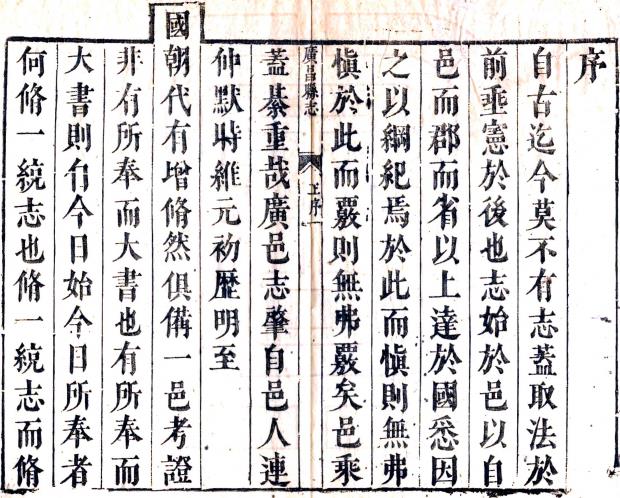 序
自古迄今莫不有志蓋取法於
前垂憲於後也志始於邑以自
邑而郡而省以上達於國悉因
之以綱紀焉於此而愼則無弗
愼於此而覈則無弗覈矣邑乘
廣昌縣志 正序 一
蓋綦重哉廣邑志肇自邑人連
仲默時維元初歷明至
國朝代有增脩然俱備一邑考證
非有所奉而大書也有所奉而
大書則自今日始今日所奉者
何脩一統志也脩一統志而脩